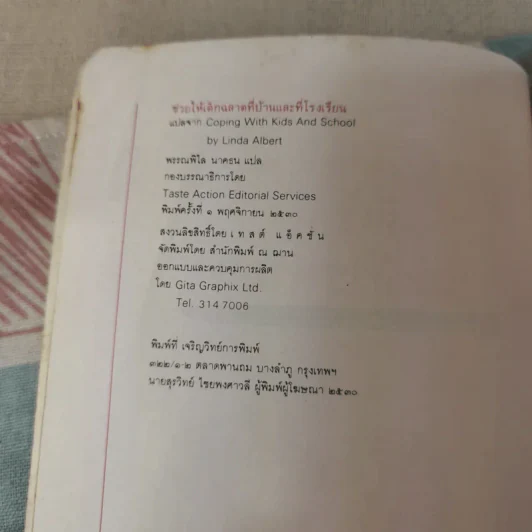 ช่วยให้เด็กฉลาดที่บ้านและที่โรงเรียน
แปลจาก Coping With Kids And School
by Linda Albert
พรรณพิไล นาคธน แปล
กองบรรณาธิการโดย
Taste Action Editorial Services
พิมพ์ครั้งที่ ๑ พฤศจิกายน ๒๕๓๐
สงวนลิขสิทธิ์โดย เ ท ส ต์ แ อ๊ ค ชั่ น
จัดพิมพ์โดย สำนักพิมพ์ ณ ฌาน
ออกแบบและควบคุมการผลิต
โดย Gita Graphix Ltd.
Tel. 314 7006
พิมพ์ที่ เจริญวิทย์การพิมพ์
๓๒๒/๑-๒ ตลาดพานถม บางลำภู กรุงเทพฯ
นายสุรวิทย์ ไชยพงศาวลี ผู้พิมพ์ผู้โฆษณา ๒๕๓๐